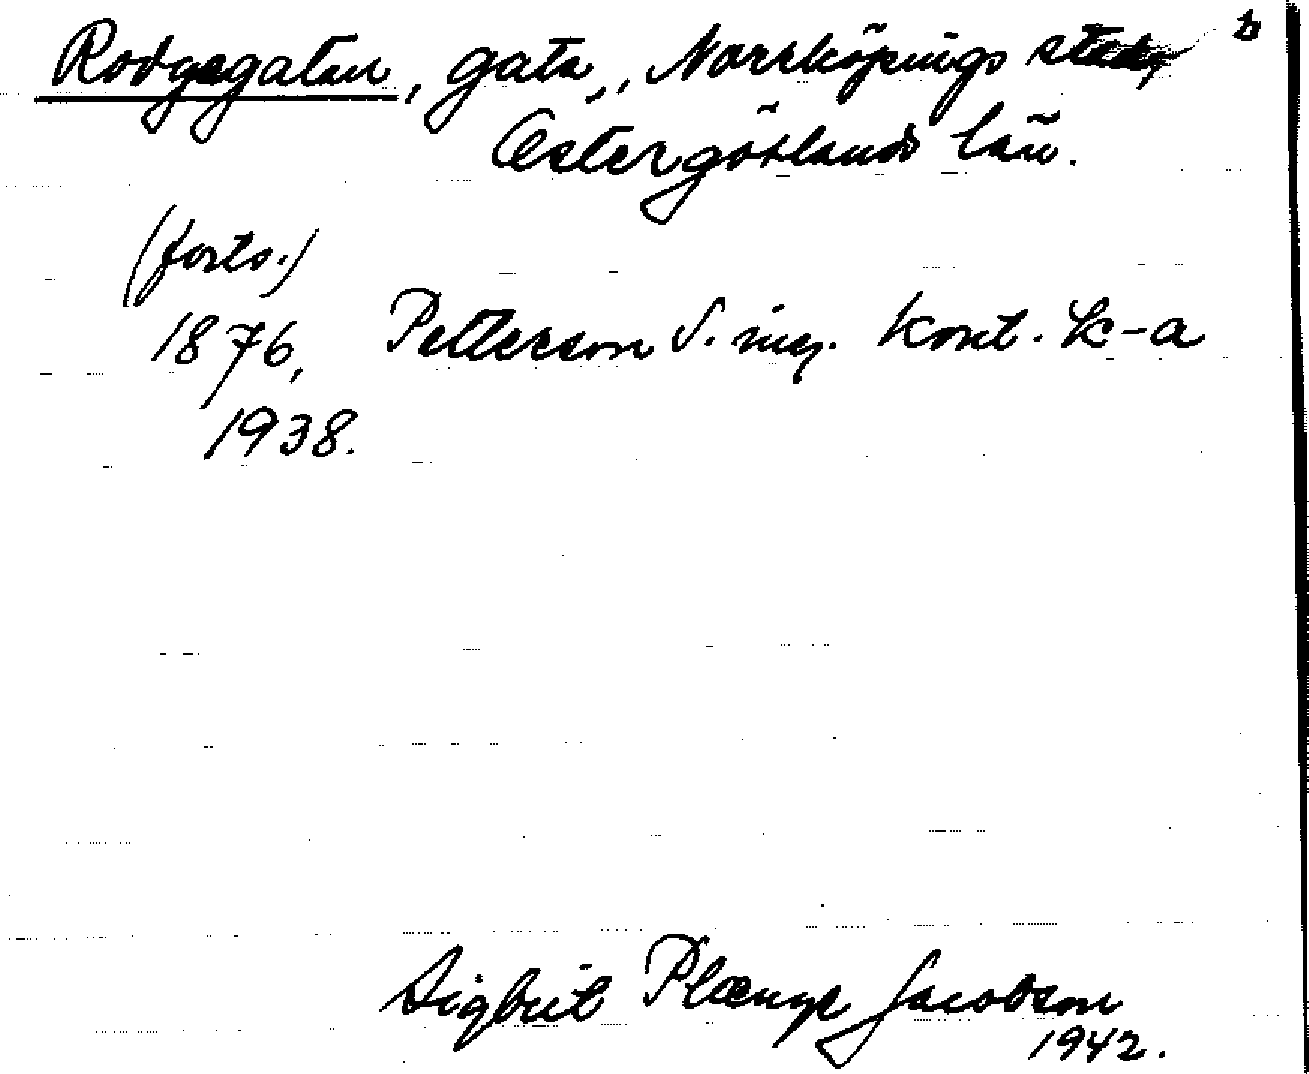 Rodgagatan, gata, Norrköpings stad, b
Östergötlands län.
(forts.)
1876, Petterson S. ing. Kont. k-a
1938.
Sigbrit Plænge Jacobson
1942.